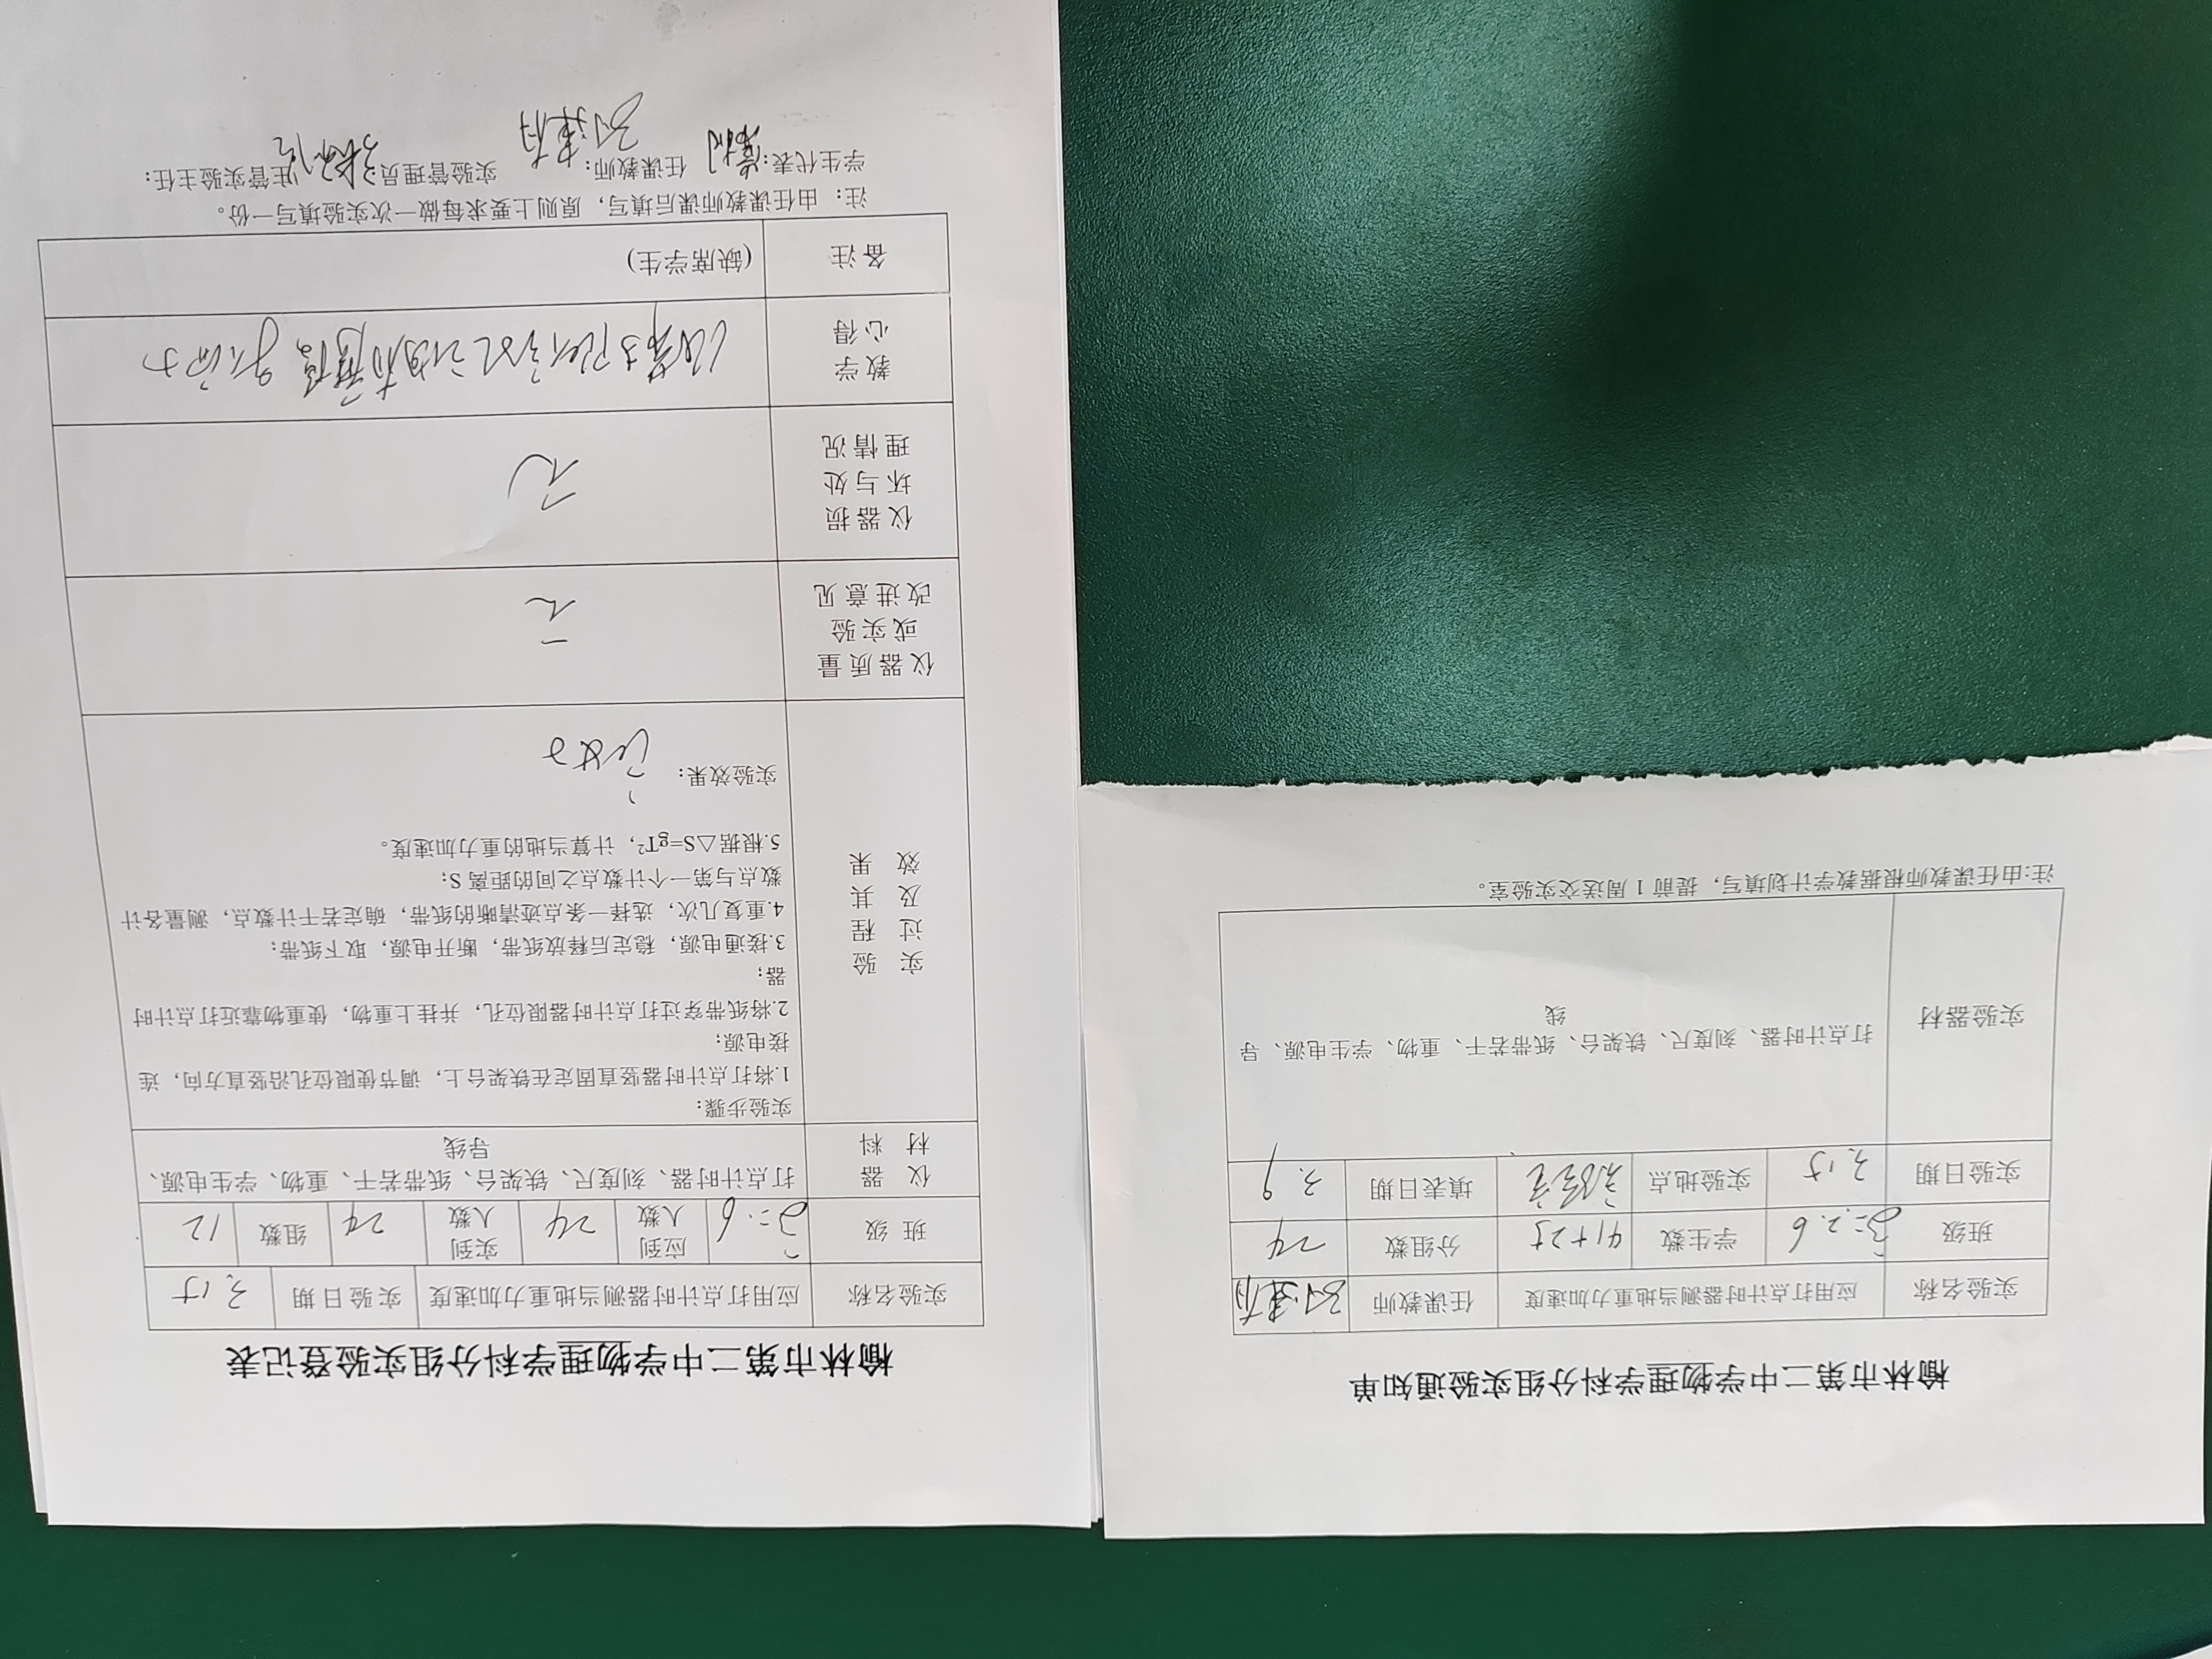 榆林市第二中学物理学科分组实验通知单
实验名称 应用打点计时器测当地重力加速度 任课教师
班级 高二.2.6 学生数 41+25 分组数 24
实验日期 3.15 实验地点 实验室 填表日期 3.9
实验器材 打点计时器、刻度尺、铁架台、纸带若干、重物、学生电源、导
线
注:由任课教师根据教学计划填写，提前1周送交实验室。
榆林市第二中学物理学科分组实验登记表
实验名称 应用打点计时器测当地重力加速度 实验日期 3.15
班级 高二.6 应到人数 24 实到人数 24 组数 12
仪器材料 打点计时器、刻度尺、铁架台、纸带若干、重物、学生电源、
导线
实验过程及其效果
实验步骤：
1.将打点计时器竖直固定在铁架台上，调节使限位孔沿竖直方向，连
接电源；
2.将纸带穿过打点计时器限位孔，并挂上重物，使重物靠近打点计时
器；
3.接通电源，稳定后释放纸带，断开电源，取下纸带；
4.重复几次，选择一条点迹清晰的纸带，确定若干计数点，测量各计
数点与第一个计数点之间的距离 S；
5.根据△S=gT²，计算当地的重力加速度。
实验效果：
仪器质量或实验改进意见 无
仪器损坏与处理情况 无
教学心得
备注 (缺席学生)
注：由任课教师课后填写，原则上要求每做一次实验填写一份。
学生代表： 任课教师： 实验管理员 主管实验主任：